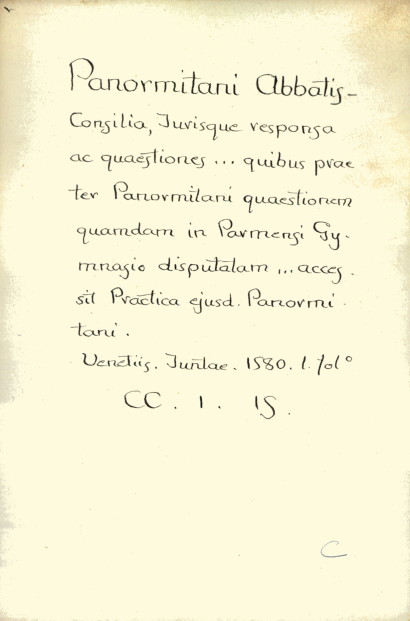 Panormitani Abbatis-
Consilia, Jurisque responsa
ac quaestiones ... quibus prae
ter Panormitani quaestionem
quamdam in Parmensi Gy-
mnasio disputatam ... acces.
sit Practica ejusd. Panormi.
tani.
Venetiis. Juntae. 1580. 1. folº
CC. 1. 15.
C